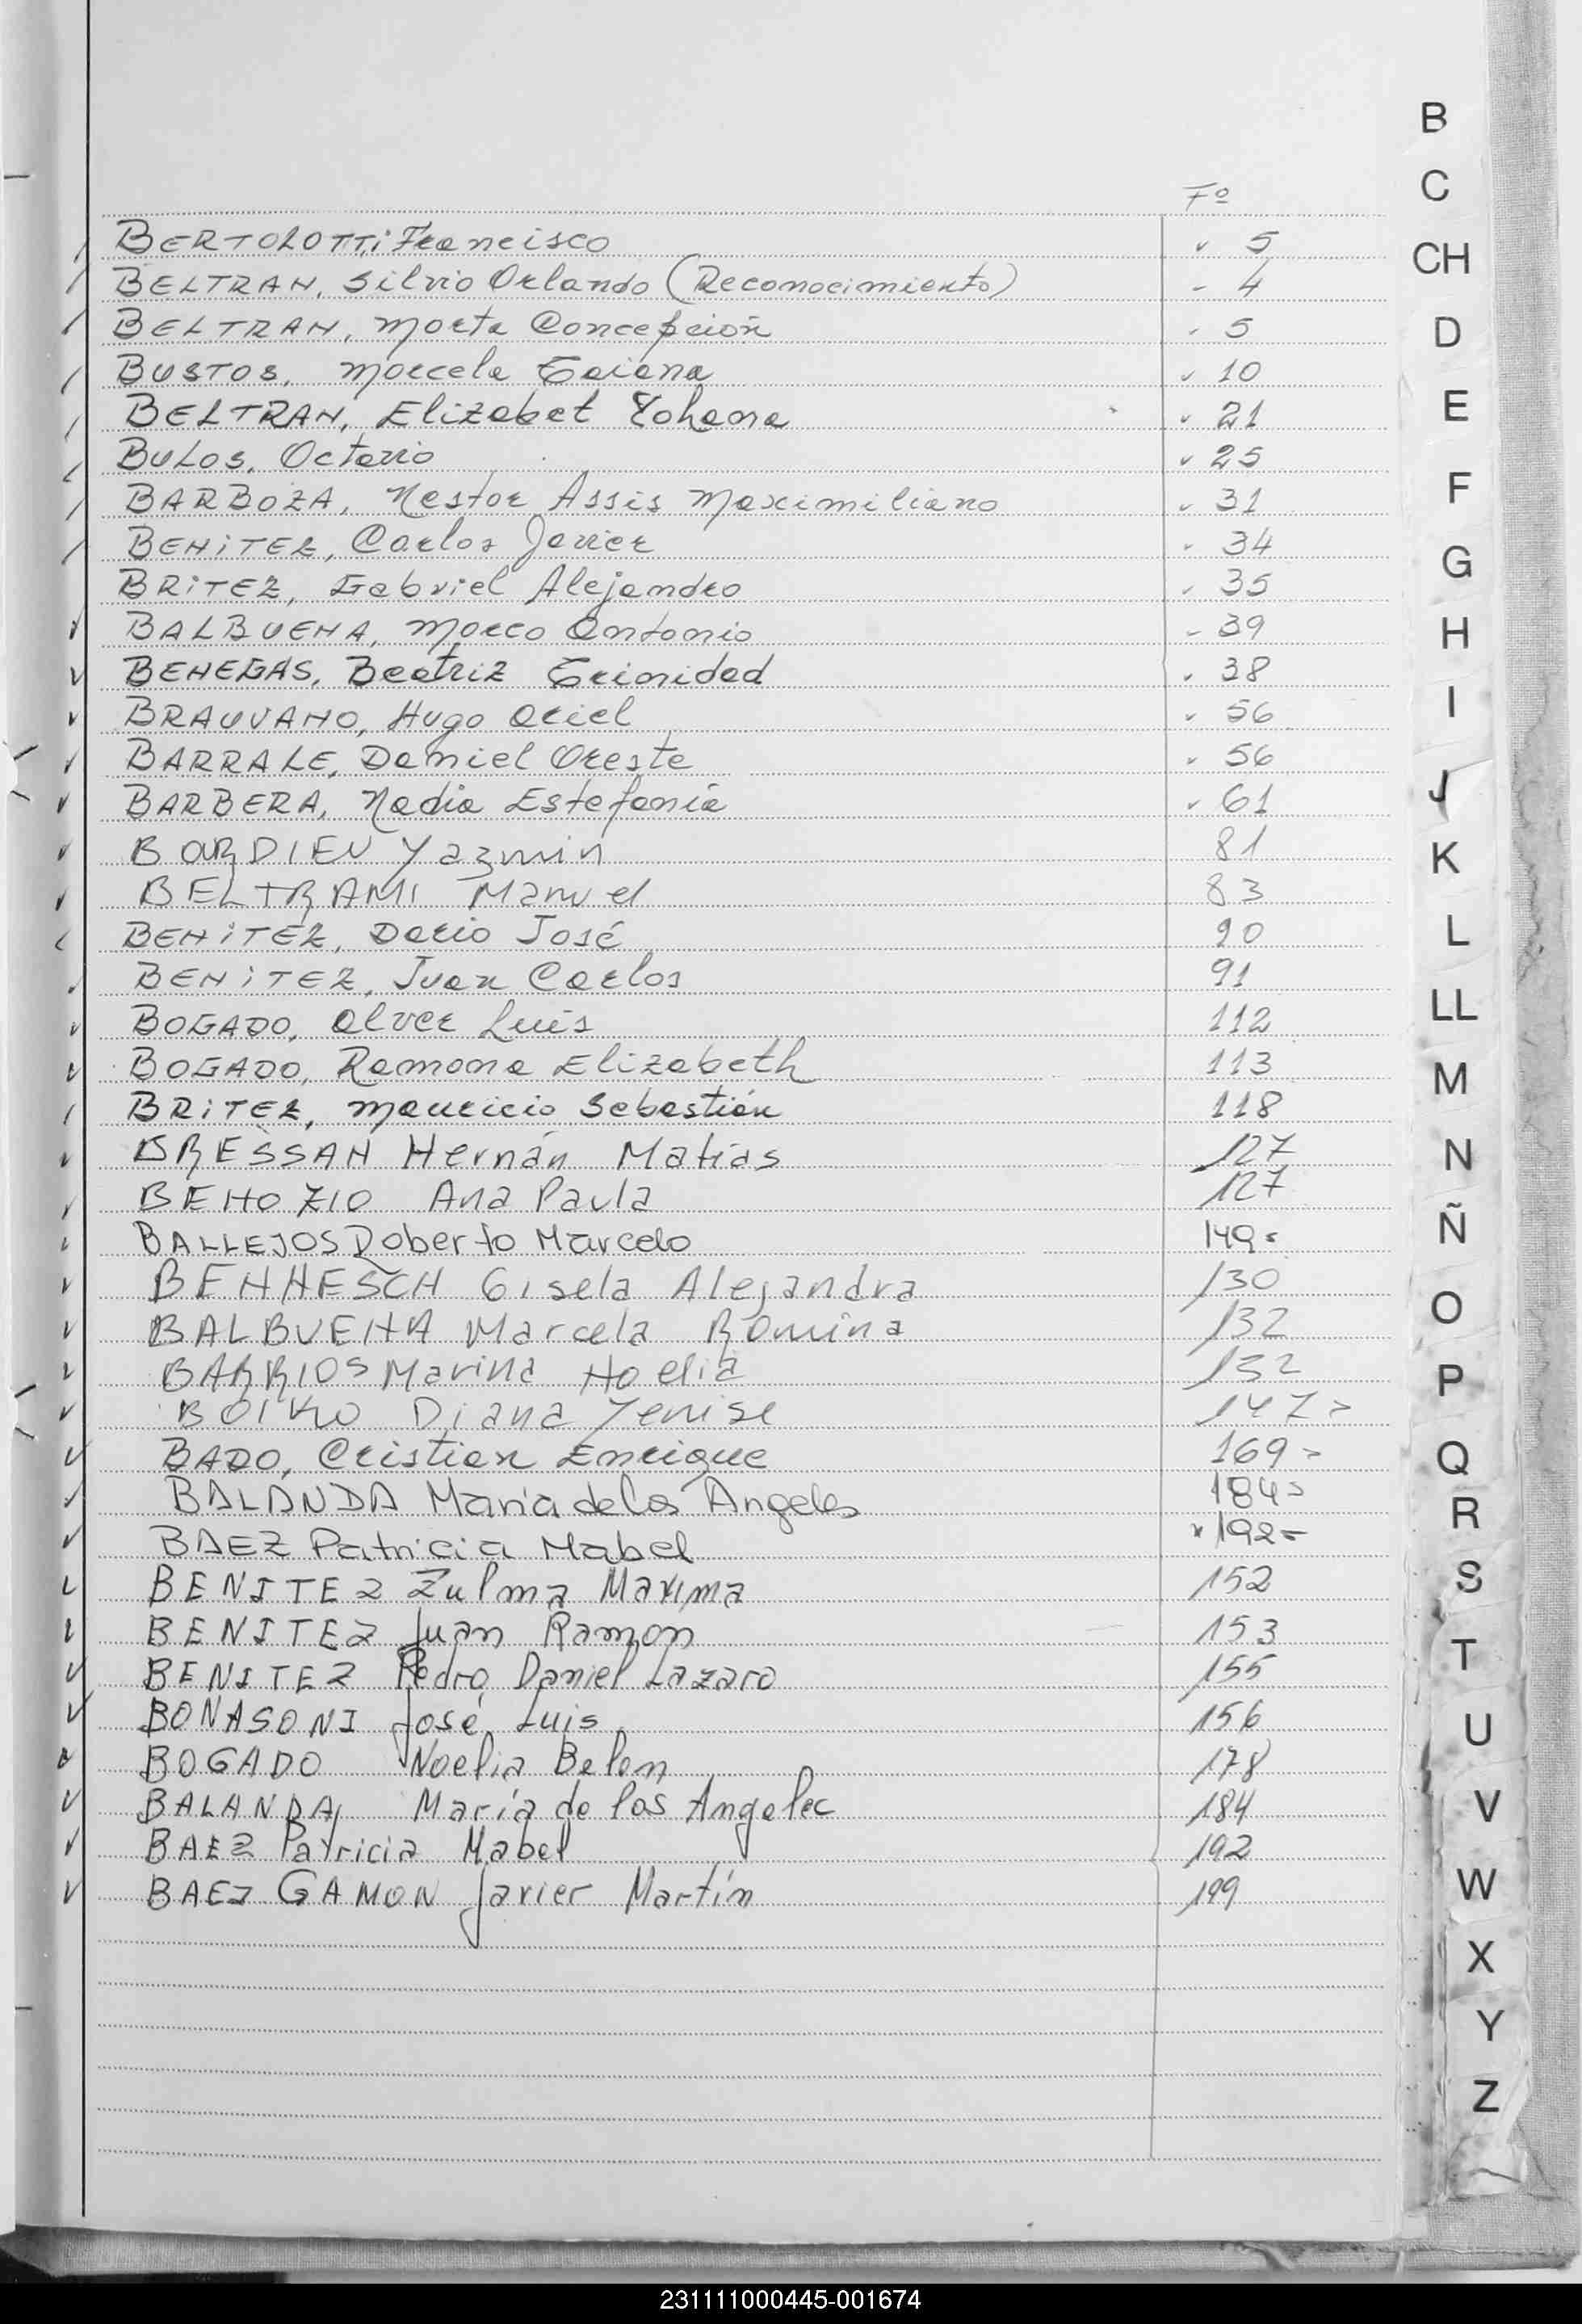 Fº
BERTOLOTTi Francisco 5
BELTRAN, Silvio Orlando (Reconocimiento) 4
BELTRAN, Marta Concepción 5
BUSTOS, Marcela Taiana 10
BELTRAN, Elizabet Yohana 21
BULOS, Octavio 25
BARBOZA, Nestor Assis Maximiliano 31
BENiTEZ, Carlos Javier 34
BRiTEZ, Gabriel Alejandro 35
BALBUENA, Marco Antonio 39
BENEGAS, Beatriz Trinidad 38
BRAUVANO, Hugo Ariel 56
BARRALE, Daniel Oreste 56
BARBERA, Nadia Estefania 61
BORDIEU Yazmin 81
BELTRAMI Manuel 83
BENiTEZ, Dario José 90
BENiTEZ, Juan Carlos 91
BOGADO, Alver Luis 112
BOGADO, Ramona Elizabeth 113
BRiTEZ, Mauricio Sebastián 118
BRESSAN Hernán Matias 127
BENOZIO Ana Paula 127
BALLEJOS Roberto Marcelo 149
BENNESCH Gisela Alejandra 130
BALBUENA Marcela Romina 132
BARRIOS Marina Noelia 132
BOIKO Diana Yenise 147
BADO, Cristian Enrique 169
BALANDA Maria de los Angeles 184
BAEZ Patricia Mabel 192
BENITEZ Zulma Maxima 152
BENITEZ Juan Ramon 153
BENITEZ Pedro Daniel Lazaro 155
BONASONI José Luis 156
BOGADO Noelia Belen 178
BALANDA, María de los Angeles 184
BAEZ Patricia Mabel 192
BAEZ GAMON Javier Martín 199
B
C
CH
D
E
F
G
H
I
J
K
L
LL
M
N
Ñ
O
P
Q
R
S
T
U
V
W
X
Y
Z
231111000445-001674